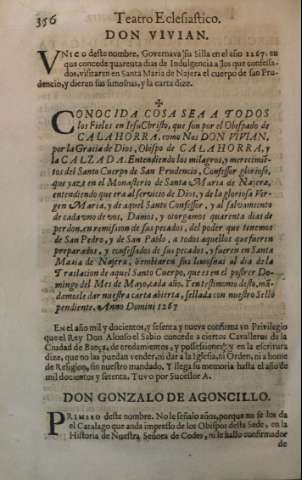 356 Teatro Eclesiastico.
DON VIVIAN.
VNICO deste nombre. Governava su Silla en el año 1267. en
que concede quarenta dias de Indulgencia a los que confessa-
dos, visitaren en Santa Maria de Najera el cuerpo de san Pru-
dencio, y dieren sus limosnas, y la carta dize.
CONOCIDA COSA SEA A TODOS
los Fieles en IesuChristo, que son por el Obispado de
CALAHORRA, como Nos DON VIVIAN,
por la Gracia de Dios, Obispo de CALAHORRA, y
la CALZADA. Entendiendo los milagros, y merecimie-
tos del Santo Cuerpo de San Prudencio, Confessor glorioso,
que yaze en el Monasterio de Santa Maria de Najera,
entendiendo que era al servicio de Dios, y de la gloriosa Vir-
gen Maria, y de aquel Santo Confessor, y al salvamiento
de cada vno de vos, Damos, y otorgamos quarenta dias de
perdon, en remission de sus pecados, del poder que tenemos
de San Pedro, y de San Pablo, a todos aquellos que fueren
preparados, y confessados de sus pecados, y fueren en Santa
Maria de Najera, sus limosnas al dia de la
Traslacion de aquel Santo Cuerpo, que es en el postrer Do-
mingo del Mes de Mayo, cada año. Y en testimonio desto, mã-
damosle dar nuestra carta abierta, sellada con nuestro Sello
pendiente. Anno Domini 1267
En el año mil y docientos, y sesenta y nueve confirma vn Privilegio
que el Rey Don Alonso el Sabio concede a ciertos Cavalleros de la
Ciudad de Baeça, de eredamientos, y possessiones, y en la escritura
dize, que no las puedan vender, ni dar a la Iglesia, ni Orden, ni a home
de Religion, sin nuestro mandado. Y llega su memoria hasta el año de
mil docientos y setenta. Tuvo por Sucessor A.
DON GONZALO DE AGONCILLO.
PRIMERO deste nombre. No le señalo años, porque no se los da
el Catalago que anda impresso de los Obispos desta Sede, en la
Historia de Nuestra Señora de Codes, ni le hallo confirmador
de